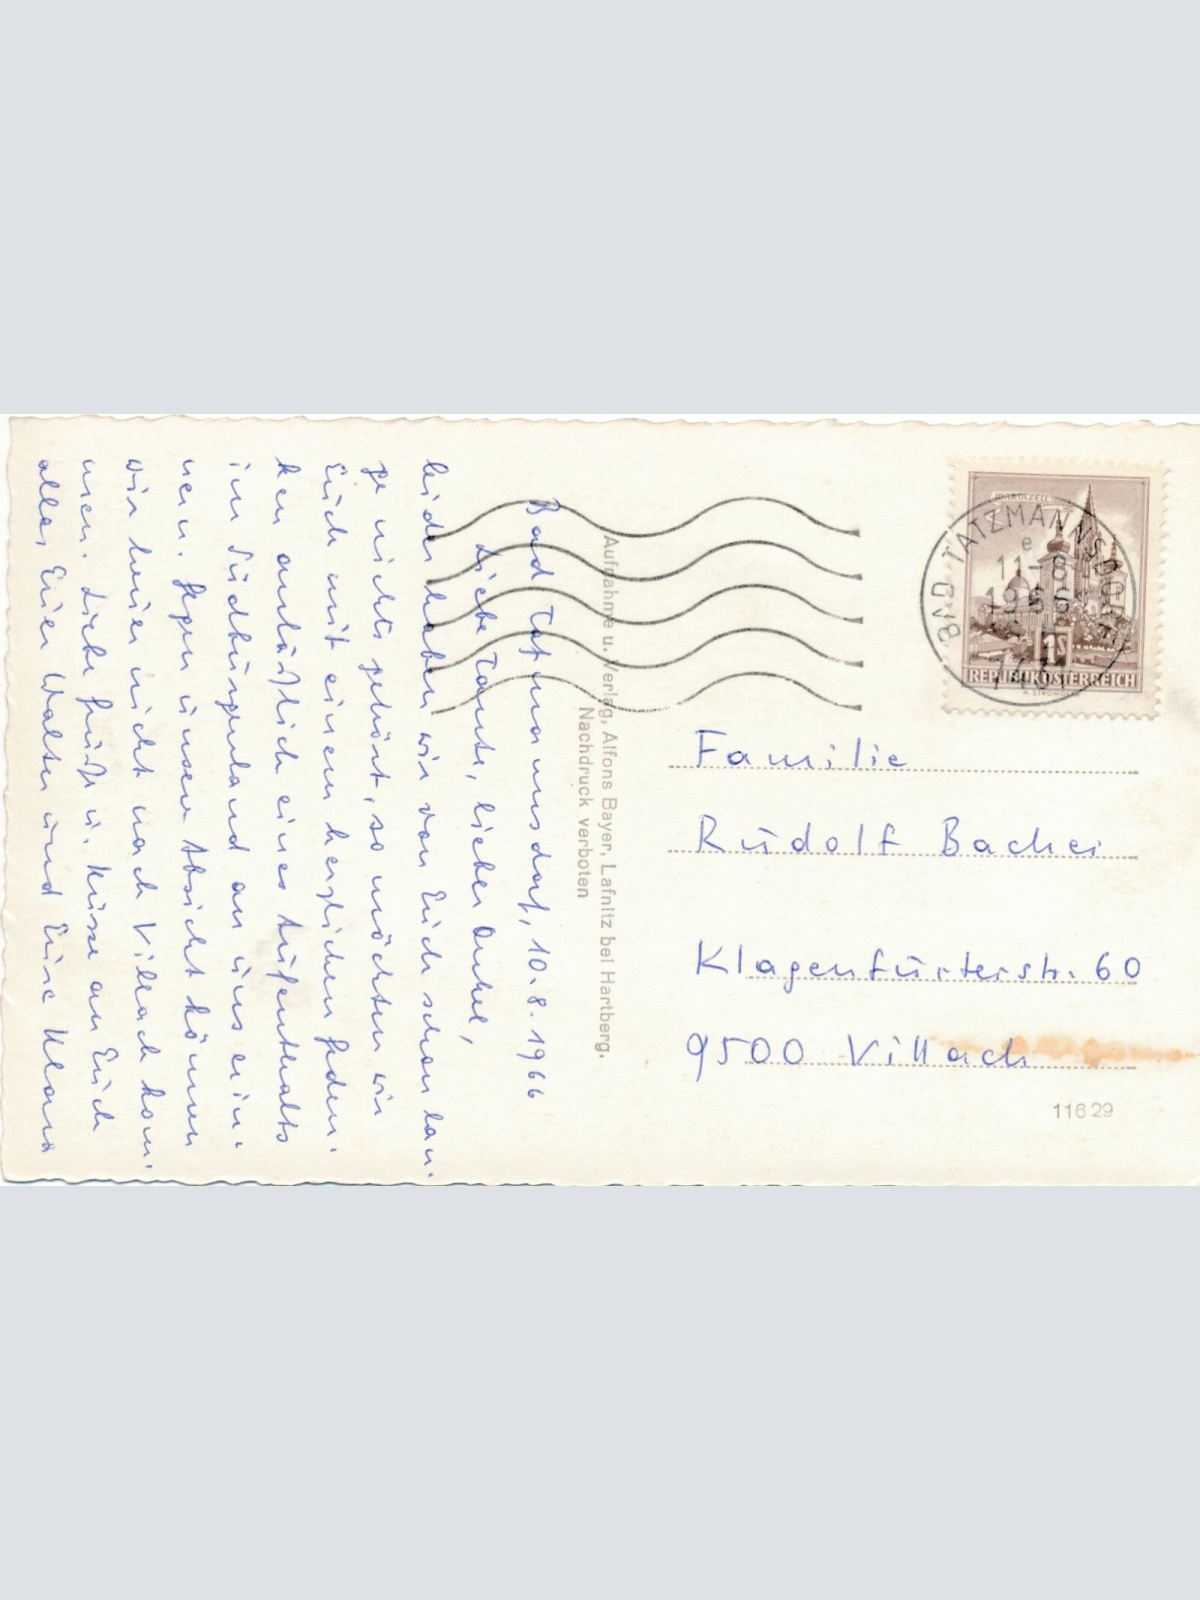 Bad Tatzmannsdorf, 10.8.1966
Liebe Tante, lieber Onkel,
leider haben wir von Euch schon lan-
ge nichts gehört, so möchten wir
Euch mit einem herzlichen Geden-
ken anläßlich eines Aufenthalts
im Südburgenland an uns erin-
nern. Gegen unsere Absicht können
wir heuer nicht nach Villach kom-
men. Liebe Grüße u. Küsse an Euch
alle, Euer Walter und Eure
Aufnahme u. Verlag, Alfons Bayer, Lafnitz bei Hartberg.
Nachdruck verboten
MARIAZELL
BAD TATZMANNSDORF
e
11-8
1966
7431
1S
REPUBLIK ÖSTERREICH
Familie
Rudolf Bacher
Klagenfurterstr. 60
9500 Villach
11629